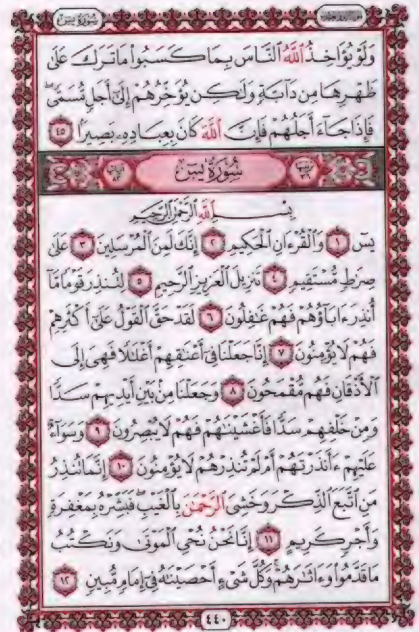 سُورَةُ يسٓ
وَلَوْ يُؤَاخِذُ ٱللَّهُ ٱلنَّاسَ بِمَا كَسَبُوا۟ مَا تَرَكَ عَلَىٰ
ظَهْرِهَا مِن دَآبَّةٍ وَلَٰكِن يُؤَخِّرُهُمْ إِلَىٰٓ أَجَلٍ مُّسَمًّى ۖ
فَإِذَا جَآءَ أَجَلُهُمْ فَإِنَّ ٱللَّهَ كَانَ بِعِبَادِهِۦ بَصِيرًۢا ٤٥
سُورَةُ يسٓ
بِسْمِ ٱللَّهِ ٱلرَّحْمَٰنِ ٱلرَّحِيمِ
يسٓ ١ وَٱلْقُرْءَانِ ٱلْحَكِيمِ ٢ إِنَّكَ لَمِنَ ٱلْمُرْسَلِينَ ٣ عَلَىٰ
صِرَٰطٍ مُّسْتَقِيمٍ ٤ تَنزِيلَ ٱلْعَزِيزِ ٱلرَّحِيمِ ٥ لِتُنذِرَ قَوْمًا مَّآ
أُنذِرَ ءَابَآؤُهُمْ فَهُمْ غَٰفِلُونَ ٦ لَقَدْ حَقَّ ٱلْقَوْلُ عَلَىٰٓ أَكْثَرِهِمْ
فَهُمْ لَا يُؤْمِنُونَ ٧ إِنَّا جَعَلْنَا فِىٓ أَعْنَٰقِهِمْ أَغْلَٰلًا فَهِىَ إِلَى
ٱلْأَذْقَانِ فَهُم مُّقْمَحُونَ ٨ وَجَعَلْنَا مِنۢ بَيْنِ أَيْدِيهِمْ سَدًّا
وَمِنْ خَلْفِهِمْ سَدًّا فَأَغْشَيْنَٰهُمْ فَهُمْ لَا يُبْصِرُونَ ٩ وَسَوَآءٌ
عَلَيْهِمْ ءَأَنذَرْتَهُمْ أَمْ لَمْ تُنذِرْهُمْ لَا يُؤْمِنُونَ ١٠ إِنَّمَا تُنذِرُ
مَنِ ٱتَّبَعَ ٱلذِّكْرَ وَخَشِىَ ٱلرَّحْمَٰنَ بِٱلْغَيْبِ ۖ فَبَشِّرْهُ بِمَغْفِرَةٍ
وَأَجْرٍ كَرِيمٍ ١١ إِنَّا نَحْنُ نُحْىِ ٱلْمَوْتَىٰ وَنَكْتُبُ
مَا قَدَّمُوا۟ وَءَاثَٰرَهُمْ ۚ وَكُلَّ شَىْءٍ أَحْصَيْنَٰهُ فِىٓ إِمَامٍ مُّبِينٍ ١٢
٤٤٠